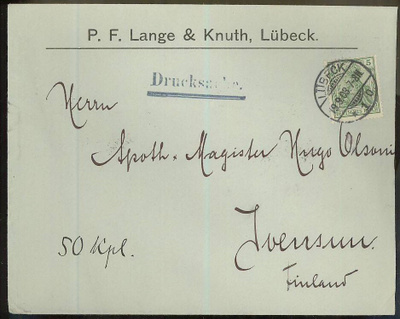 P. F. Lange & Knuth, Lübeck.
Drucksache.
LÜBECK
5
Herrn
Apoth. Magister Hugo Olsoni
50 Kpl.
Finland